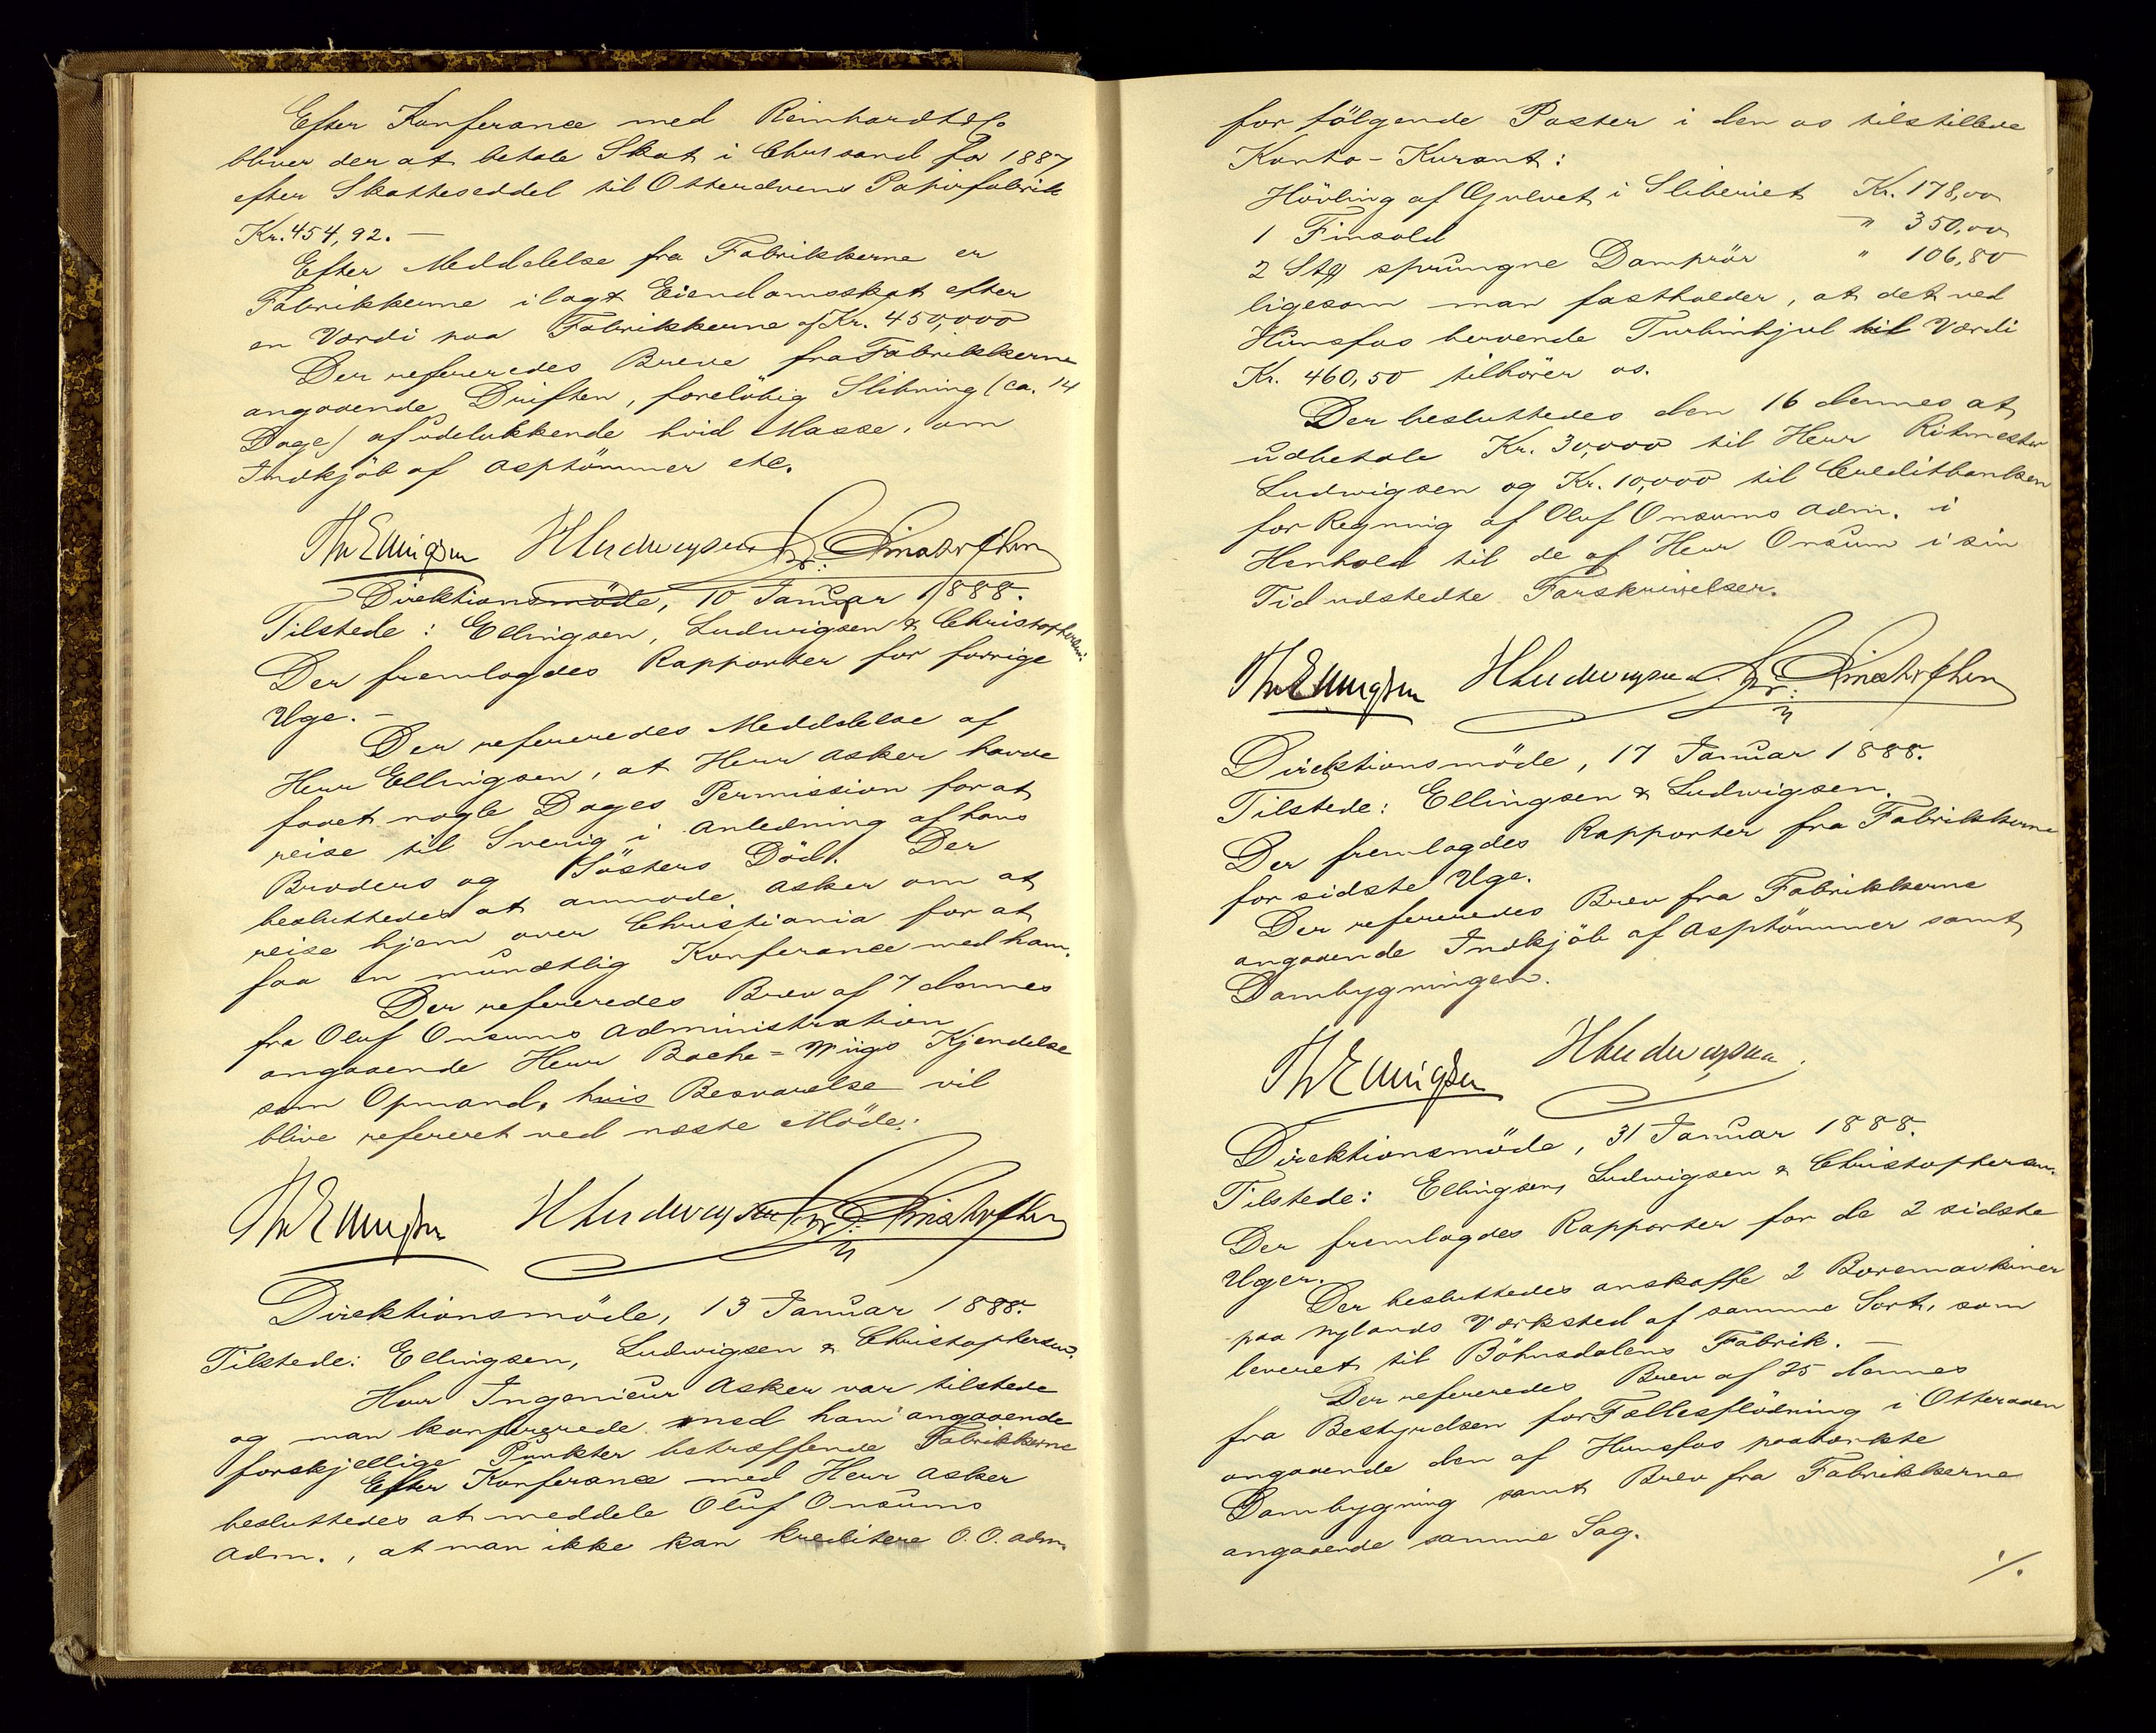 Efter Konferance med Reinhardt & Co
bliver der at betale Skat i Chrs sand for 1887
efter Skatteseddel til Otteraaens Papirfabrik
Kr. 454,92. —
Efter Meddelelse fra Fabrikkerne er
Fabrikkerne ilagt Eiendomsskat efter
en Værdi paa Fabrikkerne af Kr. 450,000
Der refereredes Breve fra Fabrikkerne
angaaende Driften, foreløbig Slibning (ca. 14
Dage) af udelukkende hvid Masse, om
Indkjöb af Asptömmer etc.
Th Ellingsen H Ludwigsen Chr. Christophersen
Direktionsmöde, 10 Januar 1888.
Tilstede: Ellingsen, Ludwigsen & Christophersen.
Der fremlagdes Rapporter for forrige
Uge. —
Der refereredes Meddelelse af
Herr Ellingsen, at Herr Asker havde
faaet nogle Dages Permission for at
reise til Sverig i Anledning af hans
Broders og Sösters Död. Der
besluttedes at anmode Asker om at
reise hjem over Christiania for at
faa en mundtlig Konferance med ham.
Der refereredes Brev af 7 dennes
fra Oluf Onsums Administration
angaaende Herr Bache-Wiigs Kjendelse
som Opmand, hvis Besvarelse vil
blive refereret ved næste Möde.
Th Ellingsen H Ludwigsen Chr. Christophersen
Direktionsmöde, 13 Januar 1888.
Tilstede: Ellingsen, Ludwigsen & Christophersen.
Herr Ingenieur Asker var tilstede
og man konfererede med ham angaaende
forskjellige Punkter betræffende Fabrikkerne
Efter Konferance med Herr Asker
besluttedes at meddele Oluf Onsums
Adm., at man ikke kan kreditere O. O. adm.
for fölgende Poster i den os tilstillede
Konto-Kurant:
Hövling af Gulvet i Sliberiet Kr. 178,00
1 Finsold " 350,00
2 Stg sprungne Damprör " 106,80
ligesom man fastholder, at det ved
Hunsfos beroende Turbinhjul til Værdi
Kr. 460,50 tilhörer os.
Der besluttedes den 16 dennes at
udbetale Kr. 30,000 til Herr Ritmester
Ludwigsen og Kr. 10,000 til Creditbanken
for Regning af Oluf Onsums Adm. i
Henhold til de af Herr Onsum i sin
Tid udstedte Forskrivelser.
Th Ellingsen H Ludwigsen Chr. Christophersen
Direktionsmöde, 17 Januar 1888.
Tilstede: Ellingsen & Ludwigsen.
Der fremlagdes Rapporter fra Fabrikkerne
for sidste Uge.
Der refereredes Brev fra Fabrikkerne
angaaende Indkjöb af Asptömmer samt
Dambygningen.
Th Ellingsen H Ludwigsen
Direktionsmöde, 31 Januar 1888.
Tilstede: Ellingsen, Ludwigsen & Christophersen.
Der fremlagdes Rapporter for de 2 sidste
Uger.
Der besluttedes anskaffe 2 Boremaskiner
paa Nylands Værksted af samme Sort, som
leveret til Böhnsdalens Fabrik. —
Der refereredes Brev af 25 dennes
fra Bestyrelsen for Fællesflödning i Otteraaen
angaaende den af Hunsfos paatænkte
Dambygning samt Brev fra Fabrikkerne
angaaende samme Sag.
·/.